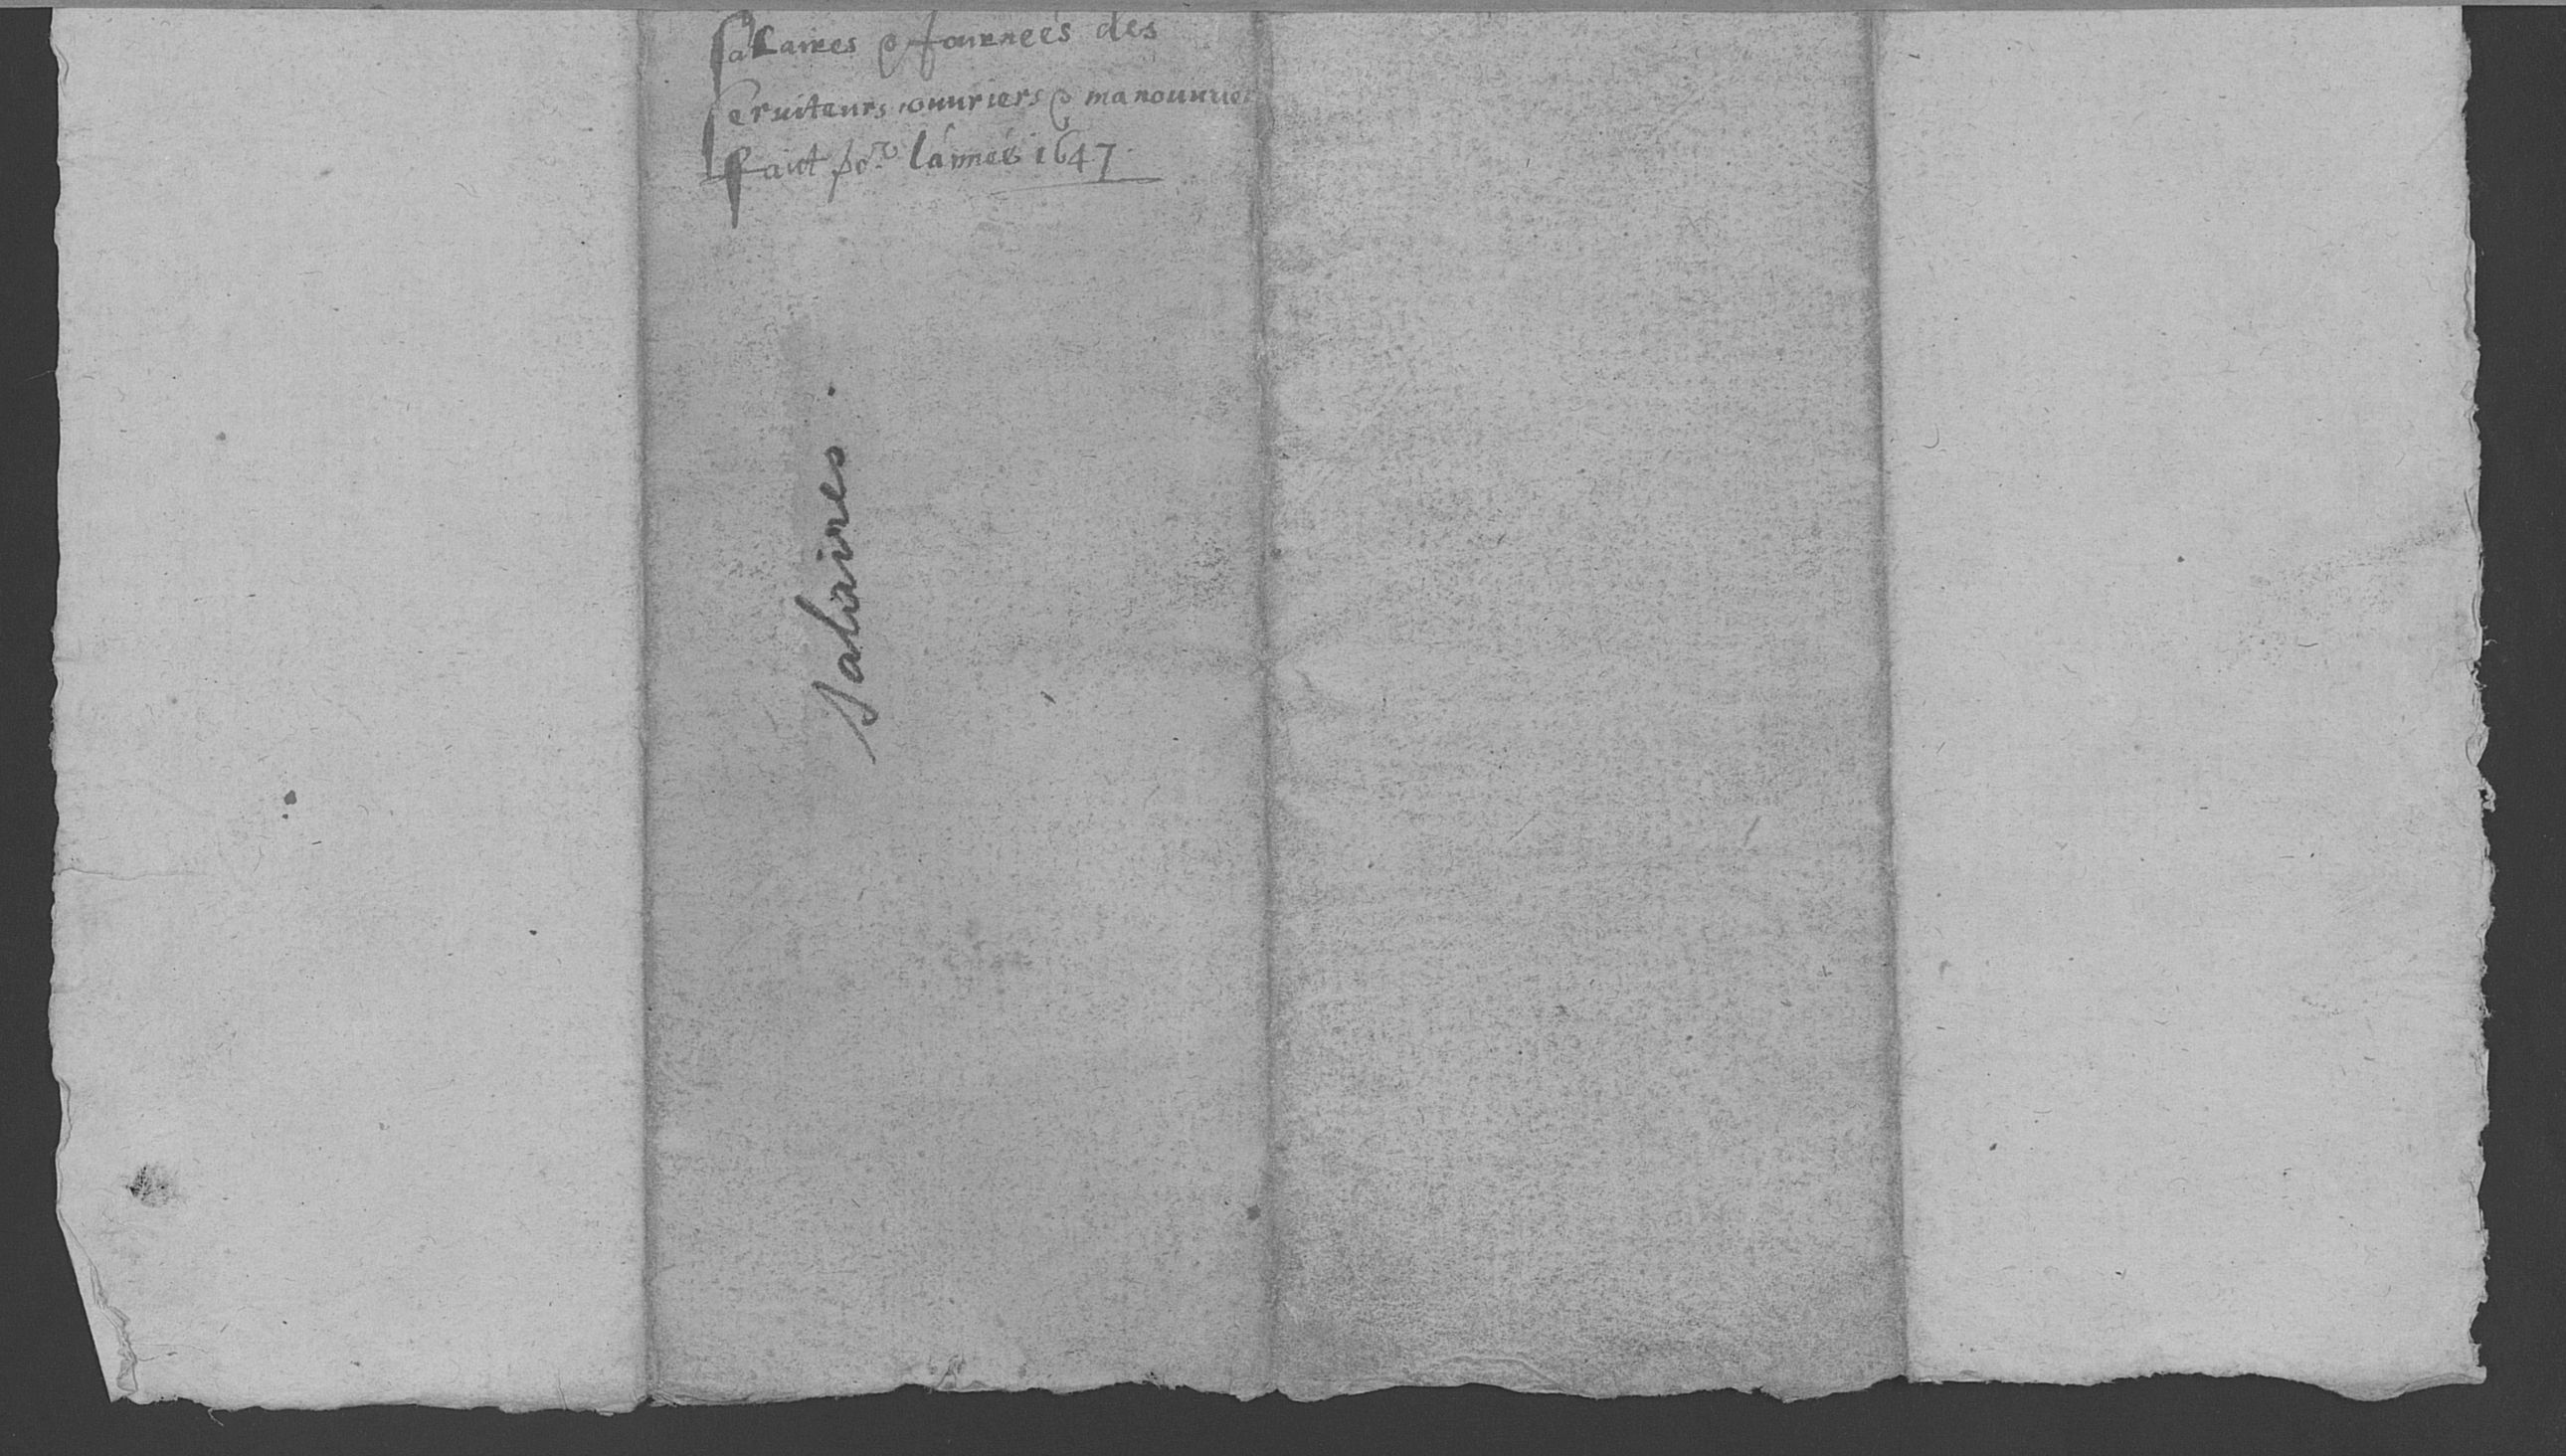 Salaires & Journeés des
Seruiteurs ouuriers & manouurier
faict po.r lánneé 1647.
Salaires.